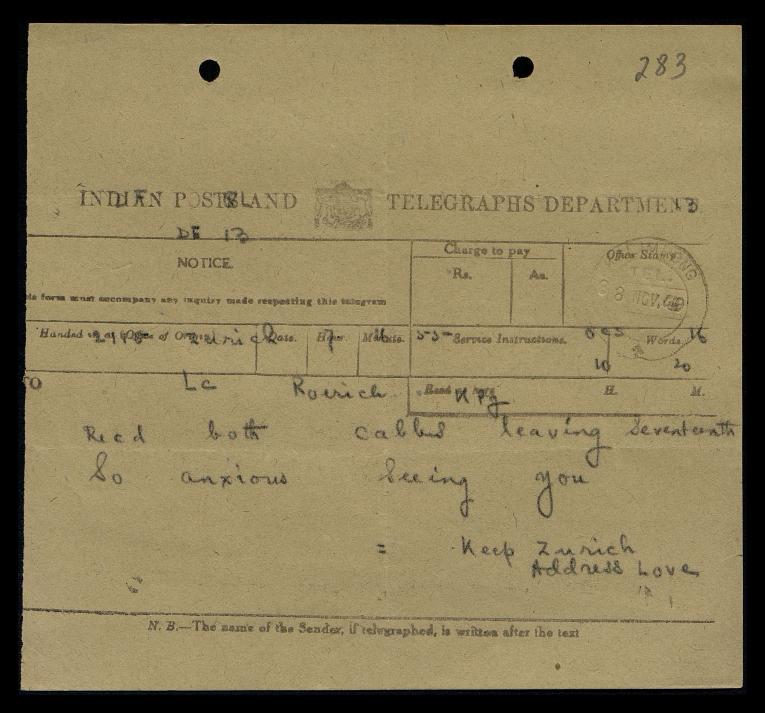 283
INDIAN POSTS AND TELEGRAPHS DEPARTMENT
DE 13
NOTICE.
Charge to pay
Office Stamp
Rs. As.
KALIMPONG
TEL.
8 NOV. 49
form must accompany any inquiry made respecting this telegram
Handed in at (Office of Origin). Date. Hour. Minute. Service Instructions. Words.
Zurich 7 16
10 20
TO LC Roerich KPG
H. M.
Recd both cables leaving Seventeenth
So anxious Seeing you
= Keep Zurich
Address Love
N. B.—The name of the Sender, if telegraphed, is written after the text